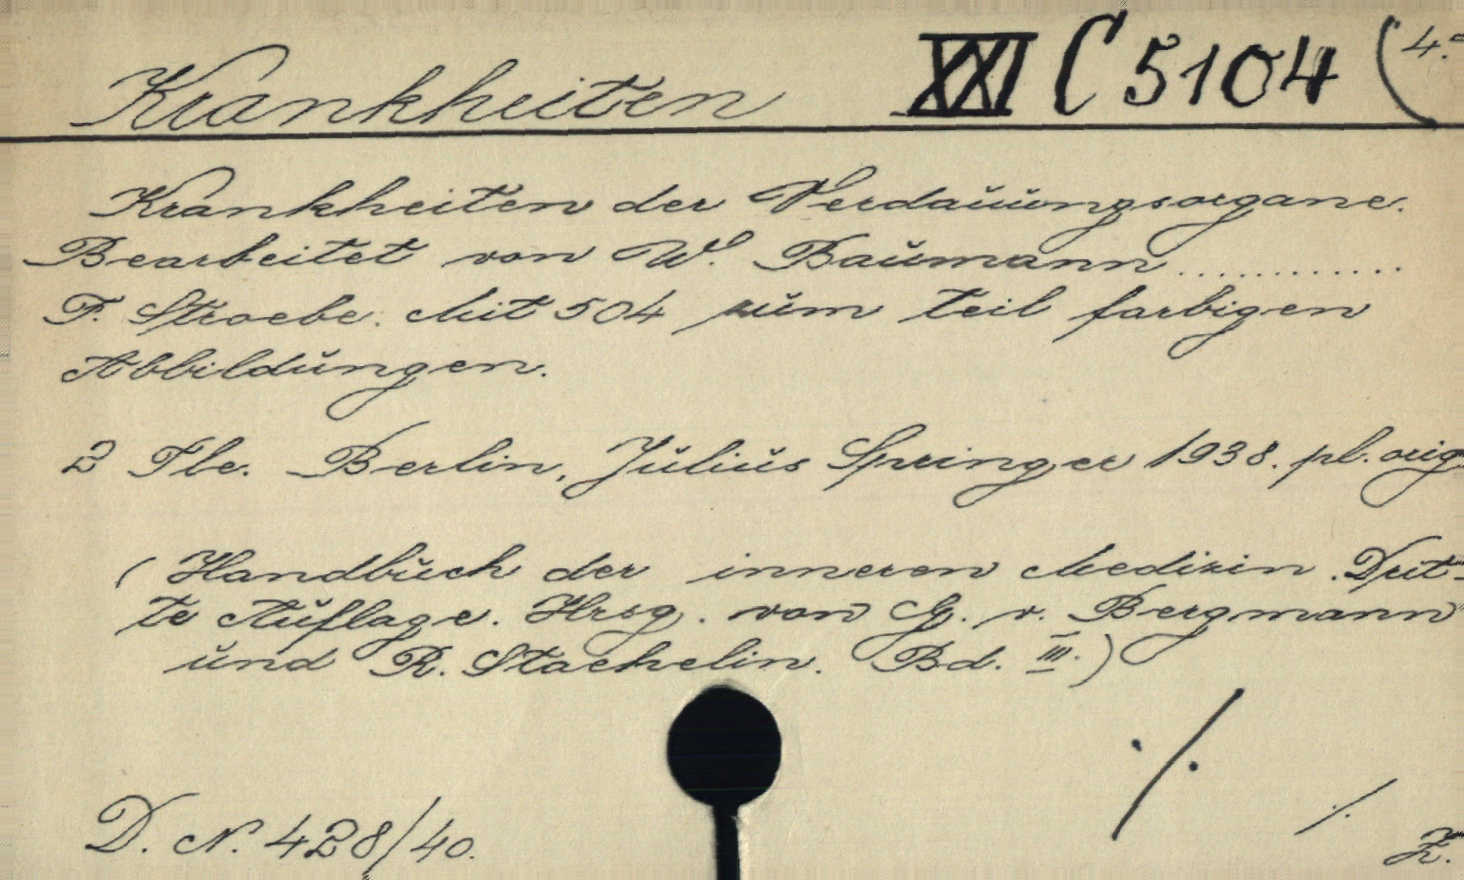 Krankheiten XXI C 5104 (4.
Krankheiten der Verdauungsorgane.
Bearbeitet von W. Baumann.............
F. Stroebe. Mit 504 zum teil farbigen
Abbildungen.
2 Tle. Berlin, Julius Springer 1938. pl. orig
(Handbuch der inneren Medizin. Drit-
te Auflage. Hrsg. von G. v. Bergmann
und R. Staehelin. Bd. III.)
D. N. 428/40.